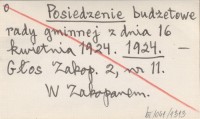 Posiedzenie budżetowe
rady gminnej z dnia 16
kwietnia 1924. 1924. —
Głos Zakop. 2, nr 11.
W Zakopanem.